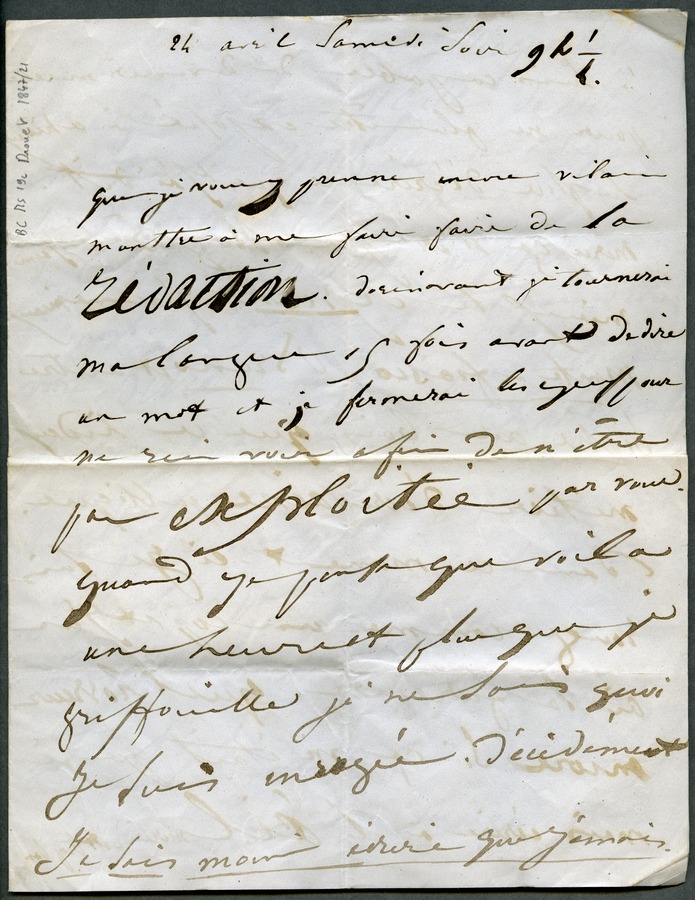 24 avril Samedi Soir 9h 1/2.
BC Ms 19c Drouet 1847/21
que je vous y prenne encore vilain
monstre à me faire faire de la
rédaction. dorénavant je tournerai
ma langue 15 fois avant de dire
un mot et je fermerai les yeux pour
ne rien voir afin de n'être
pas exploitée par vous.
quand je pense que voila
une heure et plus que je
griffouille je ne sais quoi
Je suis enragée. décidément
Je sais mieux écrire que jamais.